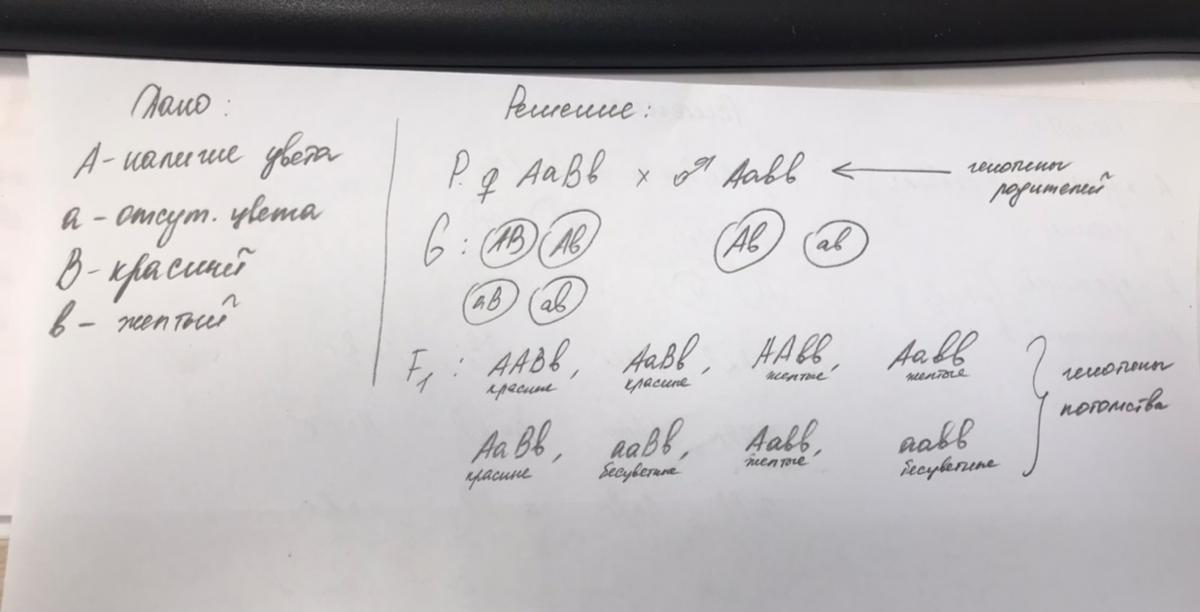 Дано:
А - наличие цвета
а - отсут. цвета
В - красный
в - желтый
Решение:
P. ♀ АаВв × ♂ Аавв ← генотипы родителей
G: АВ Ав Ав ав
аВ ав
F₁: ААВв, АаВв, ААвв, Аавв
красные красные желтые желтые
АаВв, ааВв, Аавв, аавв
красные бесцветные желтые бесцветные
генотипы
потомства